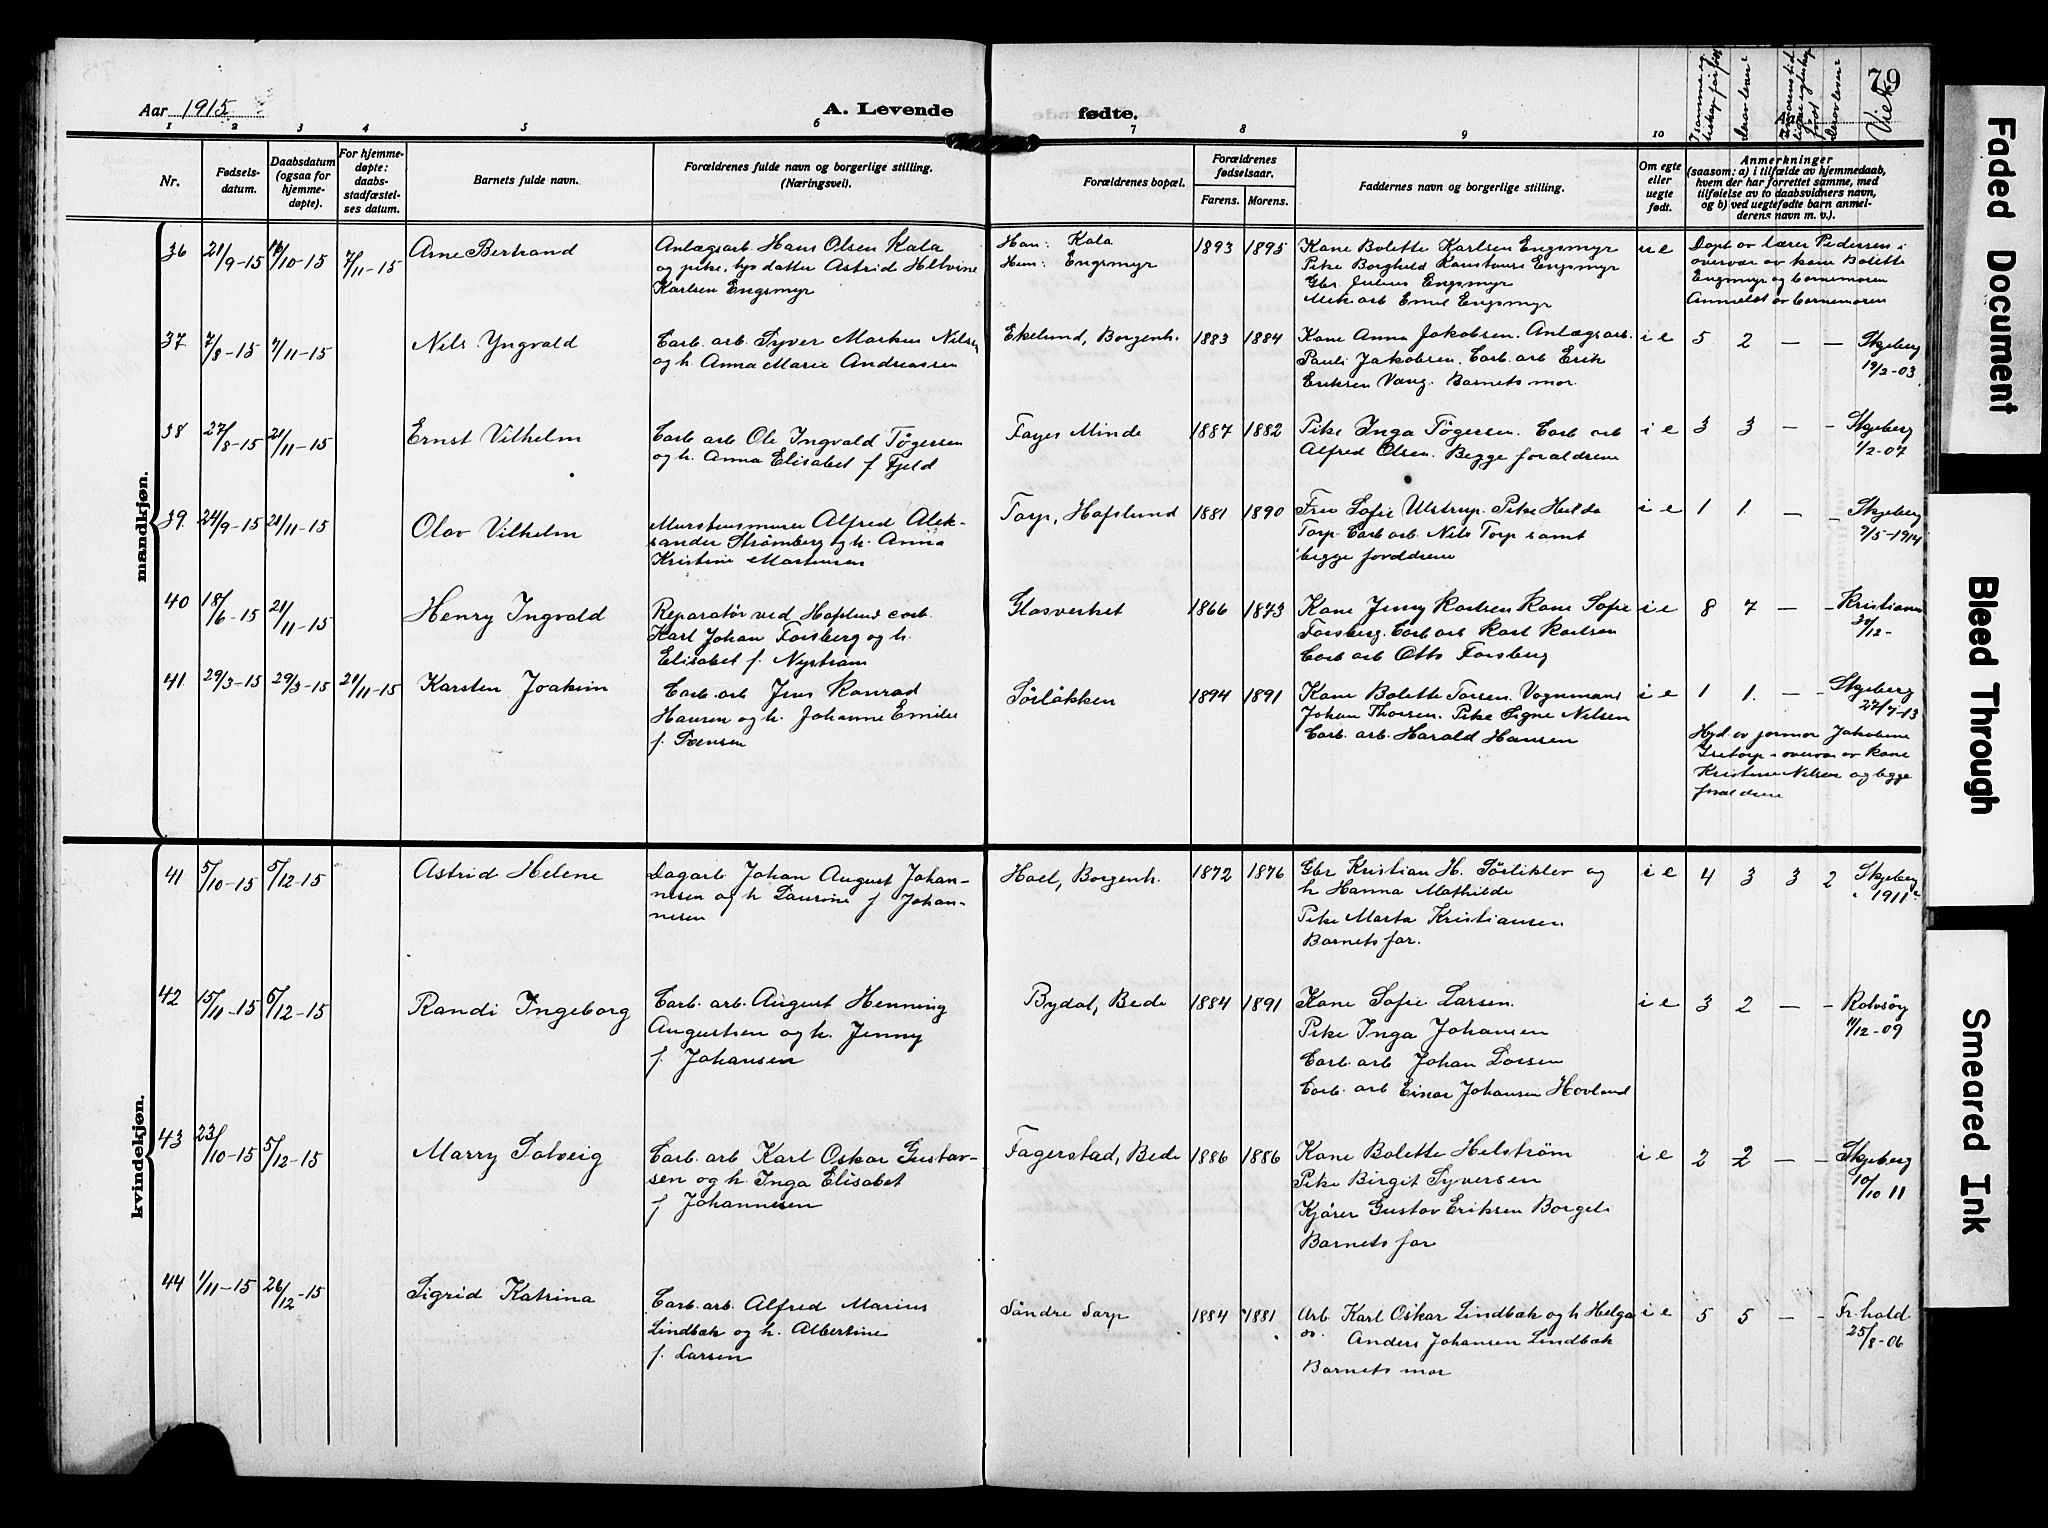 Aar 1915
A. Levende
fødte.
79
Viet
1 2 3 4 5 6 7 8 9 10
Nr.
Fødsels-
datum.
Daabsdatum
(ogsaa for
hjemme-
døpte).
For hjemme-
døpte:
daabs-
stadfæstel-
ses datum.
Barnets fulde navn.
Forældrenes fulde navn og borgerlige stilling.
(Næringsvei).
Forældrenes bopæl.
Forældrenes
fødselsaar.
Farens. Morens.
Faddernes navn og borgerlige stilling.
Om egte
eller
uegte
født.
Anmerkninger
(saasom: a) i tilfælde av hjemmedaab,
hvem der har forrettet samme, med
tilføielse av to daabsvidners navn,
og b) ved uegtefødte barn anmel-
derens navn m. v.).
mandkjøn.
36 21/9-15 /10-15 7/11-15 Arne Bertrand
Anlægsarb. Hans Olsen Kala
og pike, datter Astrid
Karlsen Engsmyr
Han: Kala
Hun: Engsmyr
1893 1895
Kone Bolette Karlsen Engsmyr
Pike Borghild Engsmyr
Gbr. Julius Engsmyr
arb Emil Engsmyr
u e
Døpt av lærer Pedersen i
overvær av kone Bolette
Engsmyr og barnemoren
Anmeldt av barnemoren
37 7/8-15 7/11-15 Nils Yngvald
Carb. arb. Syver Markus Nilsen
og h. Anna Marie Andreassen
Ekelund, Borgenh.
1883 1884
Kone Anna Jakobsen. Anlægsarb.
Paul Jakobsen. Carb. arb Erik
Eriksen Vang. Barnets mor.
i e 5 2 — — Skjeberg
19/2-03
38 27/8-15 21/11-15 Ernst Vilhelm
Carb arb Ole Ingvald Tøgersen
og h. Anna Elisabet f. Fjeld
Fayes Minde
1887 1882
Pike Inga Tøgersen. Carb arb
Alfred Olsen. Begge forældrene
i e 3 3 — - Skjeberg
1/2-07
39. 24/9-15 21/11-15 Olav Vilhelm
Murstensmurer Alfred Alek-
sander Strømberg og h. Anna
Kristine Martinsen
Torp, Hafslund
1881 1890
Fru Sofie Ulstrup. Pike Hulda
Torp. Carb arb. Nils Torp samt
begge forældrene
i e 1 1. — - Skjeberg
9/5-1914
40 18/6-15 21/11-15 Henry Ingvald
Reparatør ved Hafslund carb.
Karl Johan Forsberg og h.
Elisabet f. Nystrøm
Glasverket
1866 1873
Kone Jenny Karlsen Kone Sofie
Forsberg. Carb arb Karl Karlsen
Carb arb Otto Forsberg
i e 8 7 — - Kristiania
/12-
41. 29/3-15 29/3-15 21/11-15 Karsten Joakim
Carb. arb Jens Konrad
Hansen og h. Johanne Emilie
f. Svensen
Sørløkken
1894 1891
Kone Bolette Torsen. Vognmand
Johan Thorsen. Pike Signe Nilsen
Carb. arb. Harald Hansen
i e 1 1. — - Skjeberg
27/7-13
Hjd av formor Jakobine
Gretorp i overvær av kone
Kristine Nilsen og begge
forældrene
kvindekjøn.
41 5/10-15 5/12-15 Astrid Helene
Dagarb Johan August Johan-
nesen og h Laurine f Johan-
nesen
Hoel, Borgenh.
1872 1876
Gbr Kristian H. Sørliklev og
h Hanna Mathilde
Pike Marta Kristiansen
Barnets far.
i e 4 3 3 2 Skjeberg
1911
42 15/11-15 6/12-15 Randi Ingeborg
Carb. arb. August Henning
Augustsen og h. Jenny
f. Johansen
Bydal, Bede
1884 1891
Kone Sofie Larsen.
Pike Inga Johansen
Carb arb Johan Larsen
Carb. arb Einar Johansen Hovland
i e 3 2 — - Rolvsøy
11/12-09
43 23/10-15 5/12-15 Marry Solveig
Carb. arb Karl Oskar Gustav-
sen og h. Inga Elisabet
f Johannesen
Fagerstad, Bede
1886 1886
Kone Bolette Helstrøm
Pike Birgit Syversen
Kjører Gustav Eriksen Borgeli
Barnets far
i e 2 2 — - Skjeberg
10/10 11
44 1/11-15 26/12-15 Sigrid Katrina
Carb. arb. Alfred Marius
Lindbæk og h. Albertine
f. Larsen
Søndre Sarp
1884 1881
Arb Karl Oskar Lindbæk og h Helga
Anders Johansen Lindbæk
Barnets mor
i e 5 5 — - Fr.hald
25/8-06
Faded Document
Bleed Through
Smeared Ink